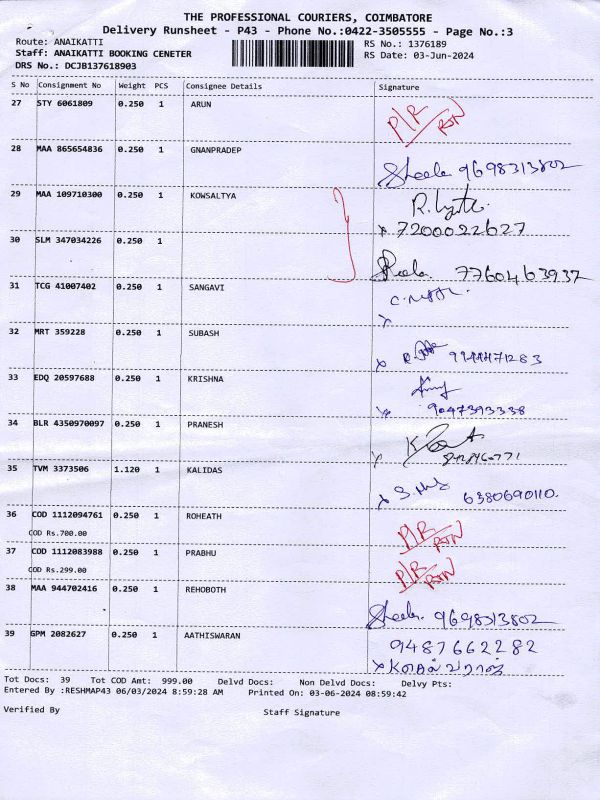 THE PROFESSIONAL COURIERS, COIMBATORE
Delivery Runsheet - P43 - Phone No.:0422-3505555 - Page No.:3
Route: ANAIKATTI RS No.: 1376189
Staff: ANAIKATTI BOOKING CENETER RS Date: 03-Jun-2024
DRS No.: DCJB137618903
S No Consignment No Weight PCS Consignee Details Signature
27 STY 6061809 0.250 1 ARUN
P/R RTN
28 MAA 865654836 0.250 1 GNANPRADEP
Sheela 9698313802
29 MAA 109710300 0.250 1 KOWSALTYA
x 7200022627
30 SLM 347034226 0.250 1
7760463937
31 TCG 41007402 0.250 1 SANGAVI
x
32 MRT 359228 0.250 1 SUBASH
x
33 EDQ 20597688 0.250 1 KRISHNA
x 9047393338
34 BLR 4350970097 0.250 1 PRANESH
x
35 TVM 3373506 1.120 1 KALIDAS
x 6380690110.
36 COD 1112094761 0.250 1 ROHEATH
COD Rs.700.00
P/R RTN
37 COD 1112083988 0.250 1 PRABHU
COD Rs.299.00
P/R RTN
38 MAA 944702416 0.250 1 REHOBOTH
Sheela 9698313802
39 GPM 2082627 0.250 1 AATHISWARAN
9487662282
x
Tot Docs: 39 Tot COD Amt: 999.00 Delvd Docs: Non Delvd Docs: Delvy Pts:
Entered By :RESHMAP43 06/03/2024 8:59:28 AM Printed On: 03-06-2024 08:59:42
Verified By Staff Signature